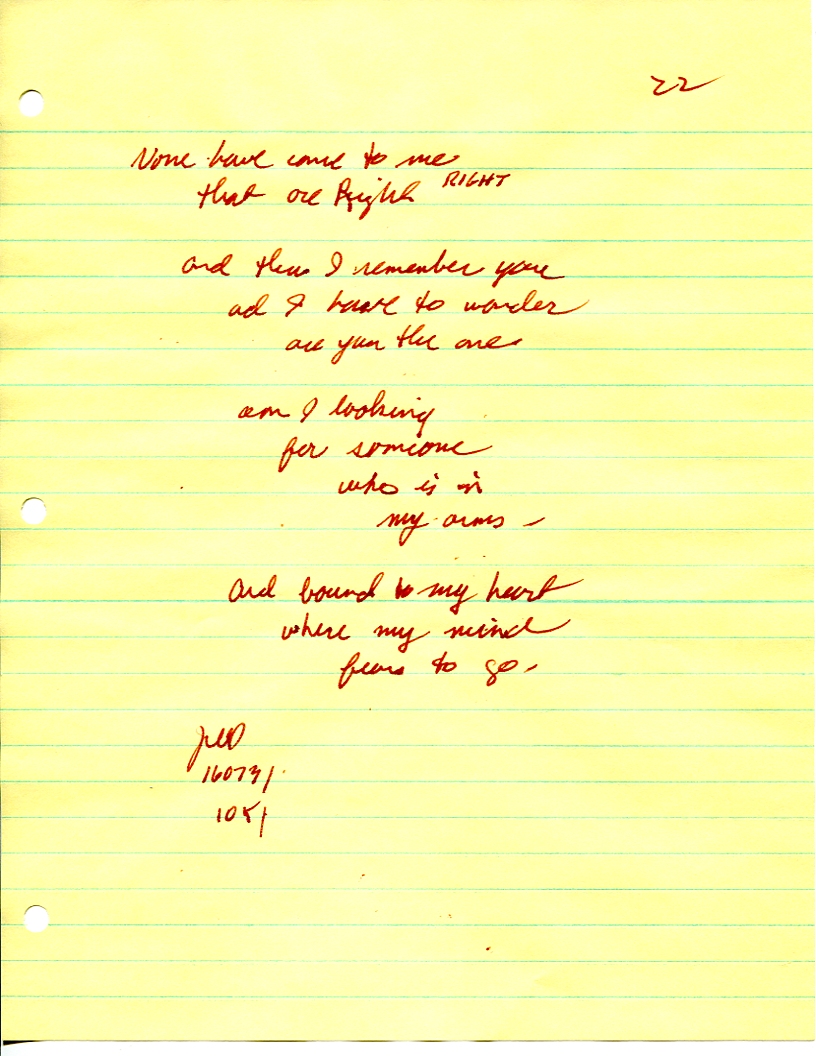 22
None have come to me
that are Right RIGHT
and then I remember you
ad I have to wonder
are you the one
am I looking
for someone
who is in
my arms -
and bound to my heart
where my mind
fears to go -
160731
1051